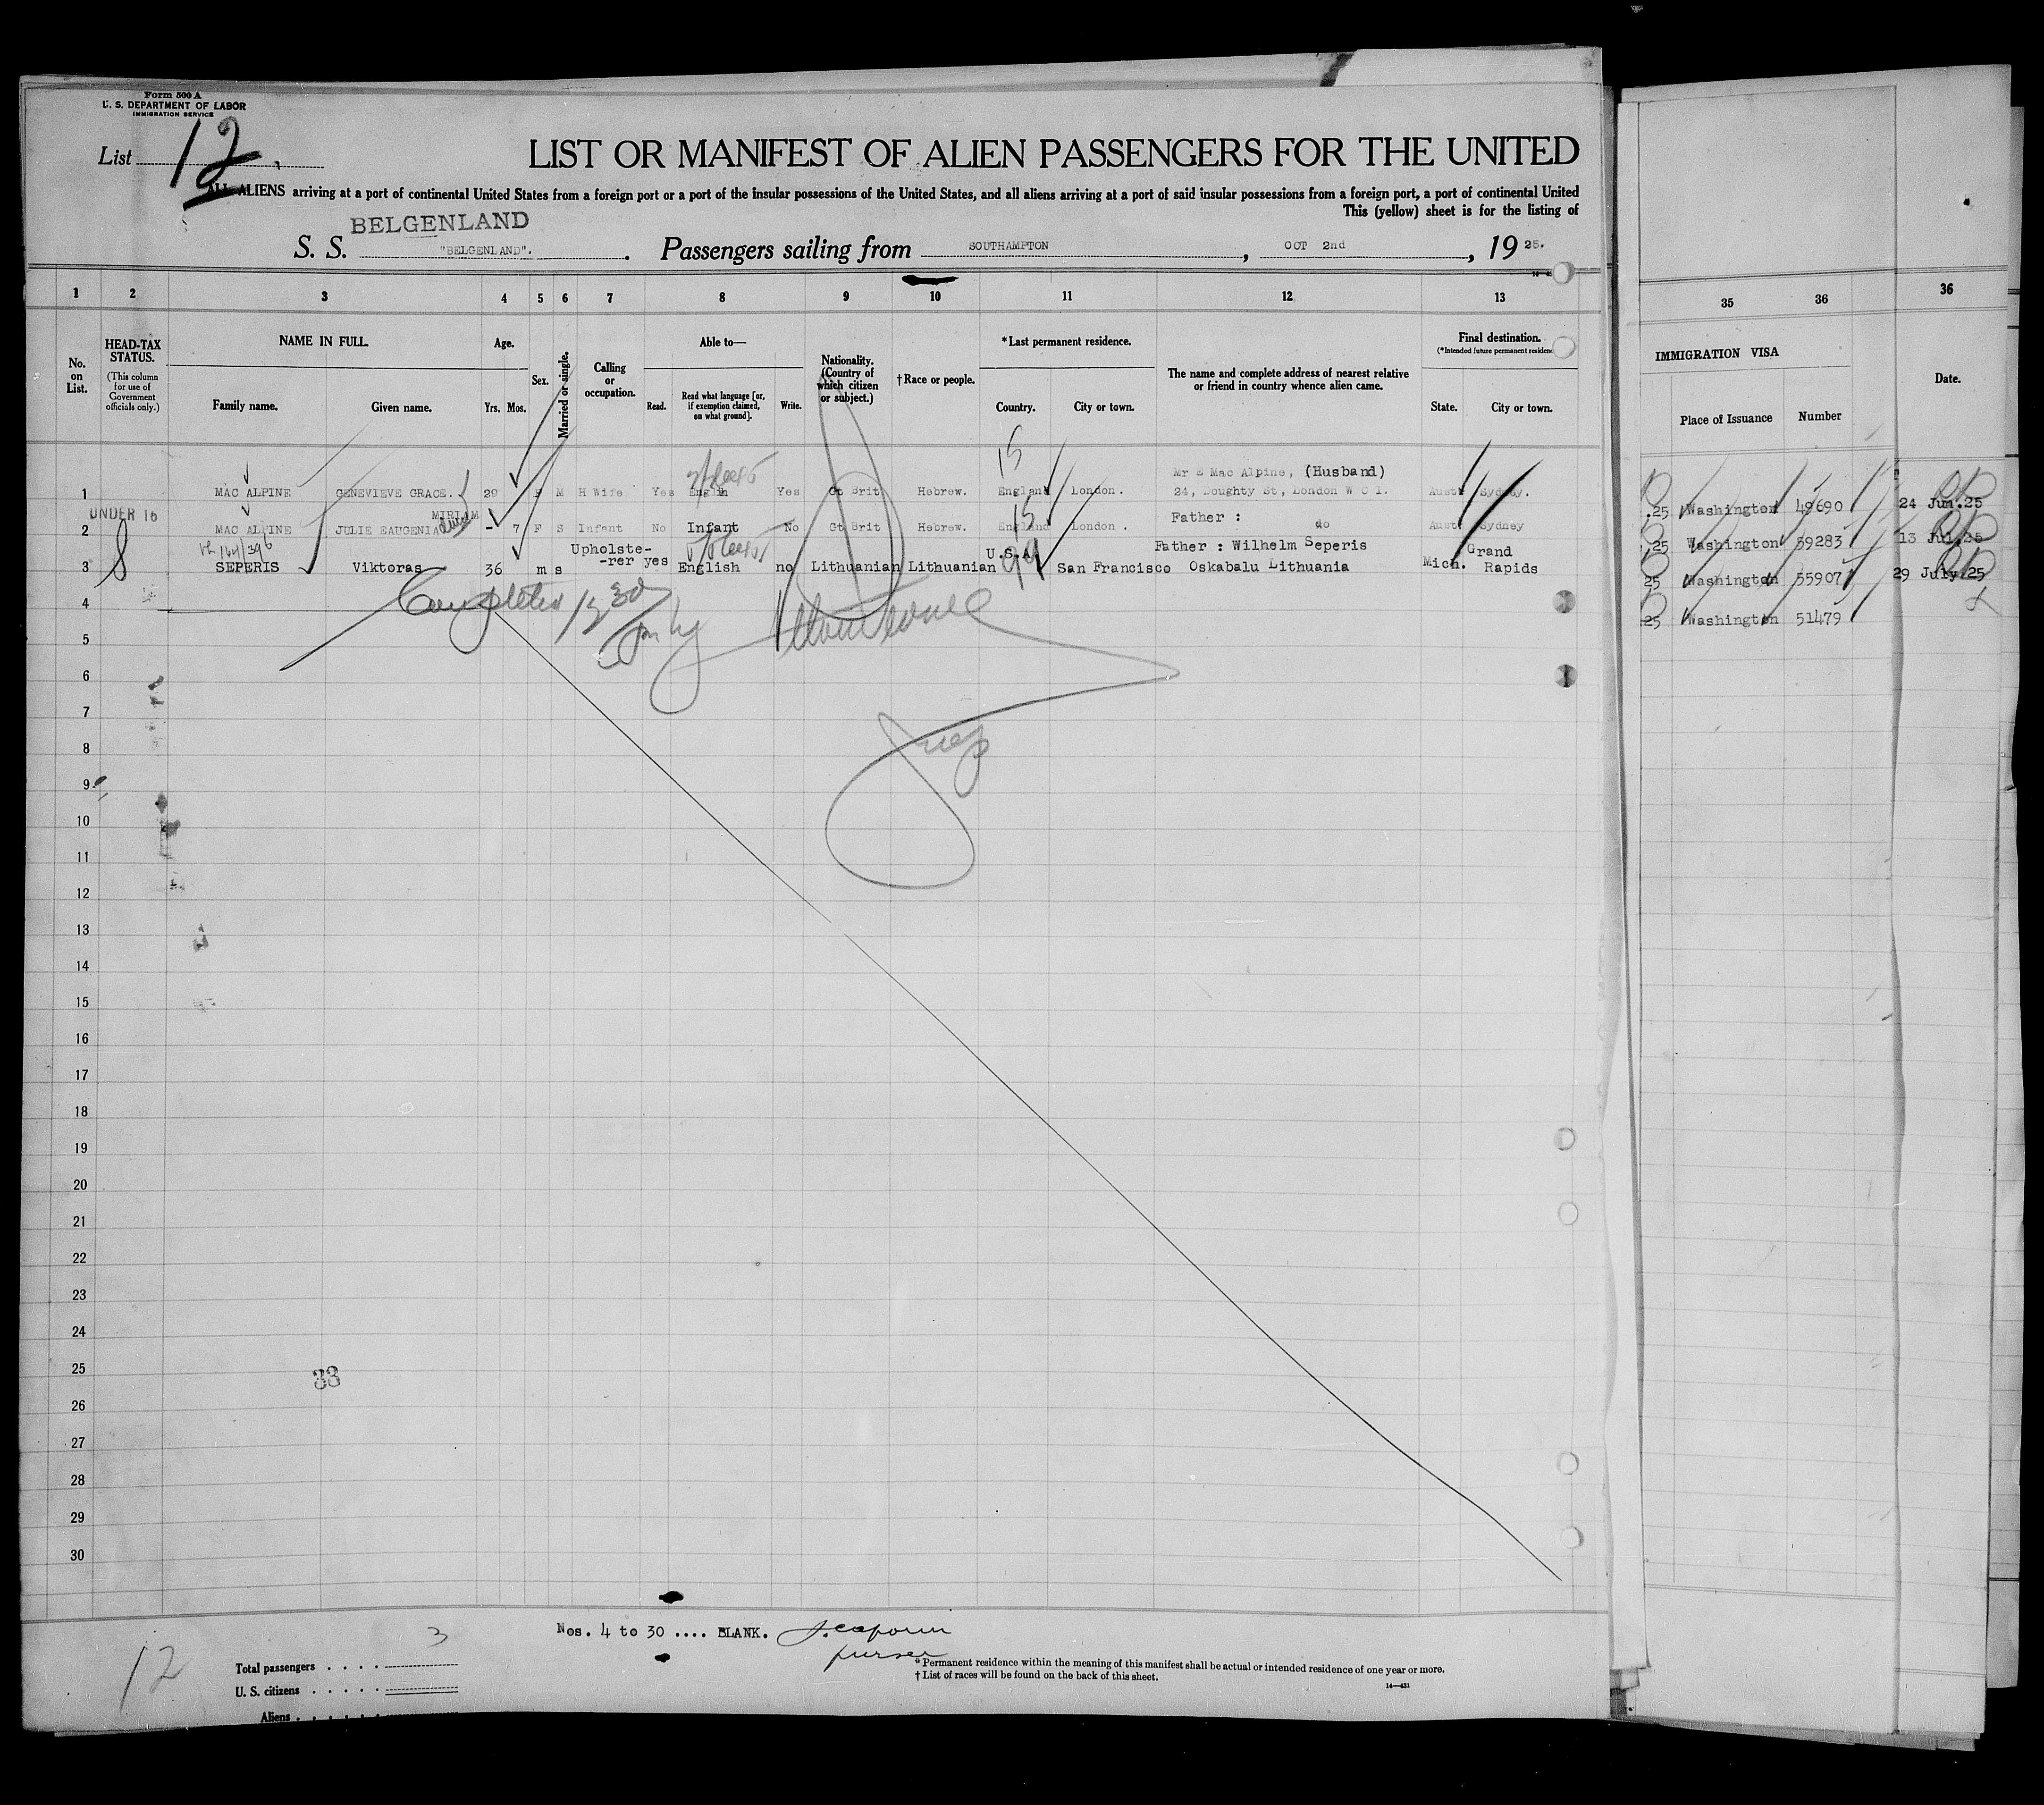 Form 500 A
U. S. DEPARTMENT OF LABOR
IMMIGRATION SERVICE
List 12
LIST OR MANIFEST OF ALIEN PASSENGERS FOR THE UNITED
ALL ALIENS arriving at a port of continental United States from a foreign port or a port of the insular possessions of the United States, and all aliens arriving at a port of said insular possessions from a foreign port, a port of continental United
This (yellow) sheet is for the listing of
BELGENLAND
S. S. "BELGENLAND". Passengers sailing from SOUTHAMPTON, OCT 2nd, 19 25.
1 2 3 4 5 6 7 8 9 10 11 12 13
No. on List.
HEAD-TAX STATUS.
(This column for use of Government officials only.)
NAME IN FULL.
Family name. Given name.
Age.
Yrs. Mos.
Sex.
Married or single.
Calling or occupation.
Able to—
Read. Read what language [or, if exemption claimed, on what ground]. Write.
Nationality. (Country of which citizen or subject.)
†Race or people.
*Last permanent residence.
Country. City or town.
The name and complete address of nearest relative or friend in country whence alien came.
Final destination.
(*Intended future permanent residence
State. City or town.
15
Mr E Mac Alpine, (Husband)
1 MAC ALPINE GENEVIEVE GRACE. 29 F M H Wife Yes Englih Yes Gt Brit Hebrew. England London. 24, Doughty St, London W C 1. Aust. Sydney.
UNDER 16 MIRIAM 15
2 MAC ALPINE JULIE EAUGENIA - 7 F S Infant No Infant No Gt Brit Hebrew. England London. Father : do Aust Sydney
164/396 Upholste- U.S.A. Father : Wilhelm Seperis Grand
3 SEPERIS Viktoras 36 m s -rer yes English no Lithuanian Lithuanian 99 San Francisco Oskabalu Lithuania Mich. Rapids
4
Completed
5
6
7
8
9
10
11
12
13
14
15
16
17
18
19
20
21
22
23
24
25
33
26
27
28
29
30
Nos. 4 to 30 .... BLANK.
purser
12
3
Total passengers
U. S. citizens
Aliens
*Permanent residence within the meaning of this manifest shall be actual or intended residence of one year or more.
†List of races will be found on the back of this sheet.
14—431
35 36 36
IMMIGRATION VISA
Place of Issuance Number Date.
.25 Washington 49690 24 Jun.25
.25 Washington 59283 13 Jul.25
25 Washington 55907 29 July.25
25 Washington 51479